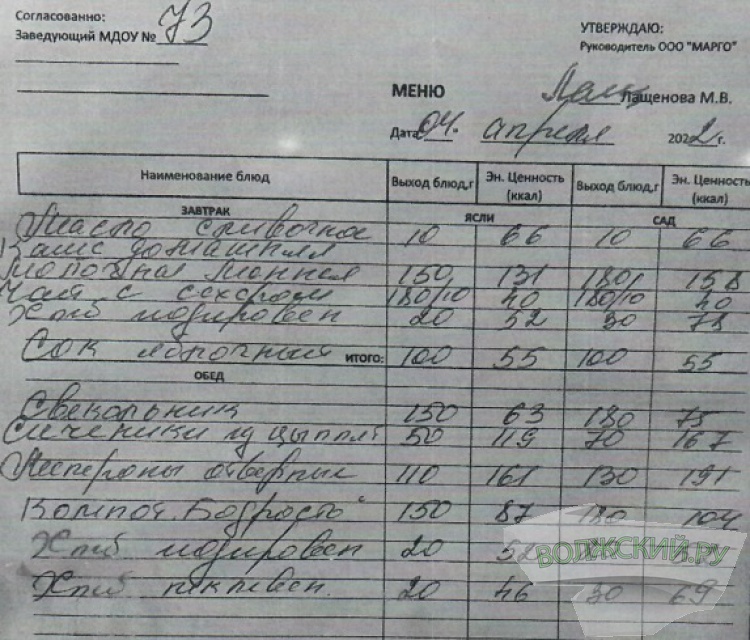 Согласованно:
Заведующий МДОУ № 73
УТВЕРЖДАЮ:
Руководитель ООО "МАРГО"
МЕНЮ
Лащенова М.В.
Дата 04. апреля 2022 г.
Наименование блюд Выход блюд,г Эн. Ценность (ккал) Выход блюд,г Эн. Ценность (ккал)
ЗАВТРАК ЯСЛИ САД
Масло сливочное 10 66 10 66
Каша домашняя
молочная манная 150 131 180 158
Чай с сахаром 180/10 40 180/10 40
Хлеб йодирован 20 52 30 78
Сок яблочный ИТОГО: 100 55 100 55
ОБЕД
Свекольник 150 63 180 75
Сиченики цыплят 50 119 70 167
Макароны отварные 110 161 130 191
Компот "Бодрость" 150 87 180 104
Хлеб йодирован 20
Хлеб пеклеван. 20 46 30 69
ВОЛЖСКИЙ.РУ